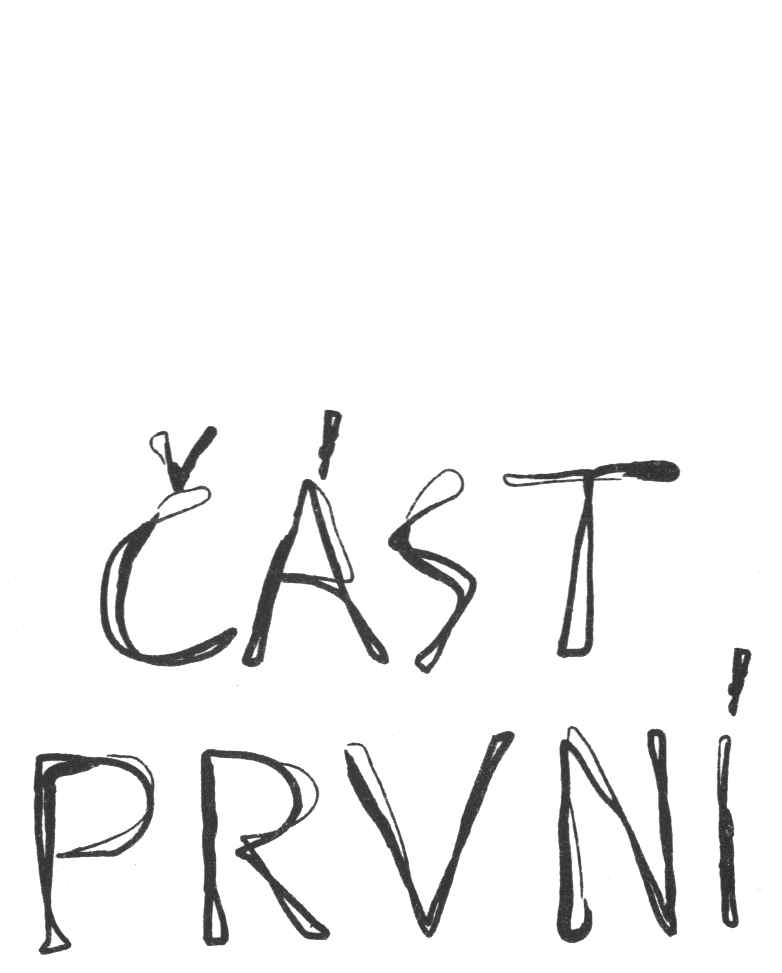 ČÁST
PRVNÍ